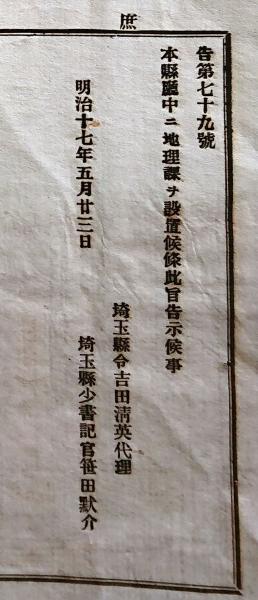 庶
告第七十九號
本縣廳中ニ地理課ヲ設置候條此旨告示候事
明治十七年五月廿三日
埼玉縣令吉田淸英代理
埼玉縣少書記官笹田默介